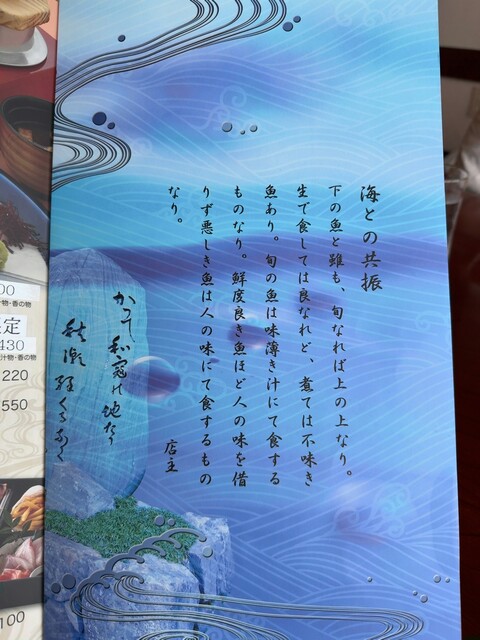 海との共振
下の魚と雖も、旬なれば上の上なり。
生で食しては良なれど、煮ては不味き
魚あり。旬の魚は味薄き汁にて食する
ものなり。鮮度良き魚ほど人の味を借
りず悪しき魚は人の味にて食するもの
なり。
店主
かつて和寇の地なり
00
汁物・香の物
限定
430
汁物・香の物
220
550
100